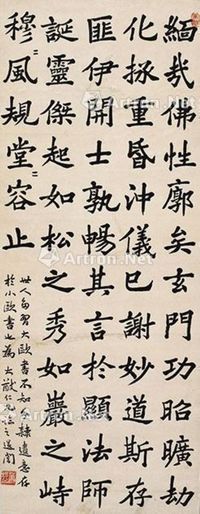 緬哉佛性廓矣玄門功昭曠劫
化拯重昏沖儀已謝妙道斯存
匪伊開士孰暢其言於顯法師
誕靈傑起如松之秀如巖之峙
穆=風規堂=容止
世人多習大歐書不知分隸遺意存
於小歐書也為大猷仁兄臨之
Artron.Net